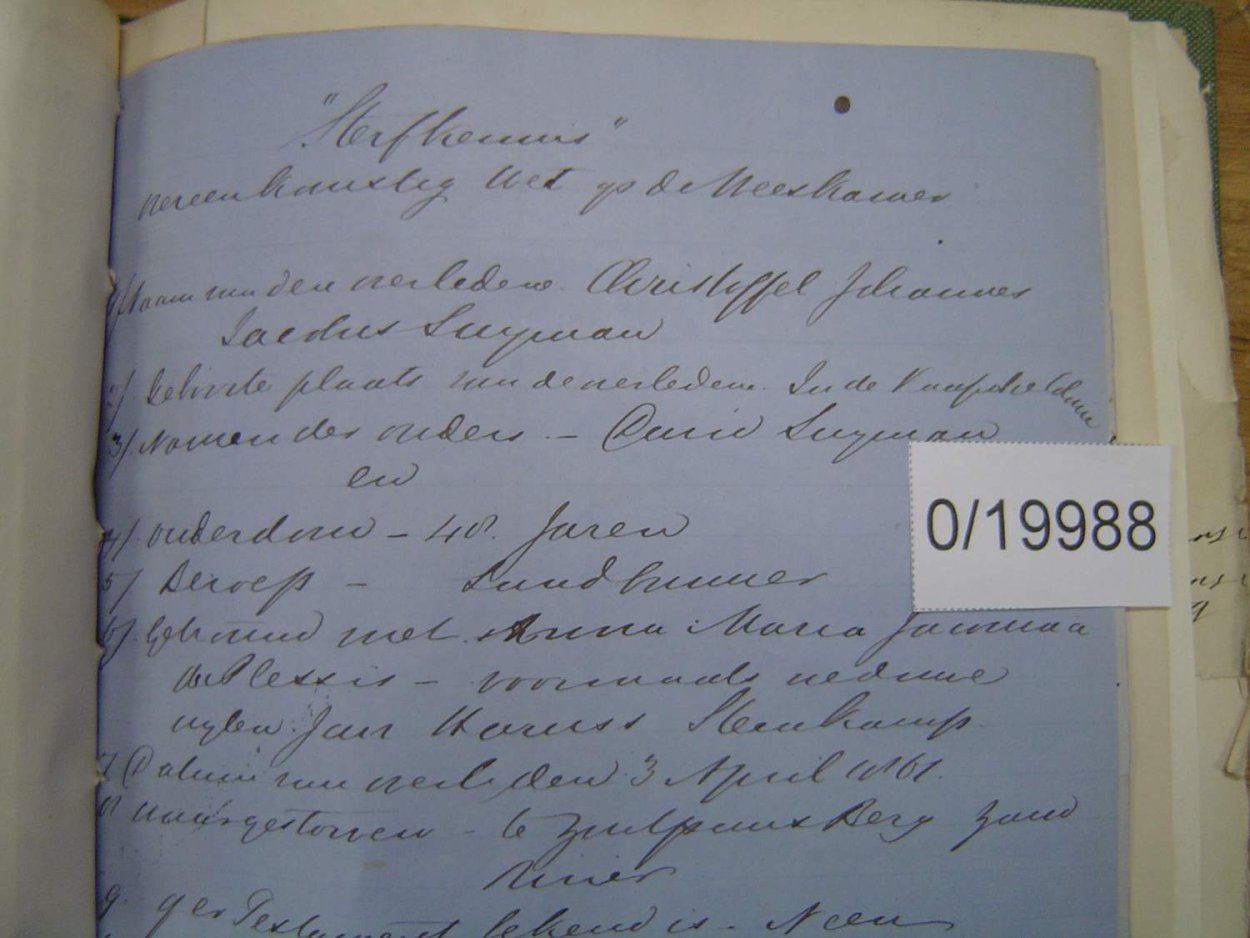 "Sterfkennis"
overeenkomstig Wet op de Weeskamer
1/ Naam van den overledene. Christoffel Johannes
Jacobus Snyman
2/ Geboorte plaats van de overledene. In de Kaapsche
3/ Namen der ouders. – Snyman
en
4/ ouderdom – 48. Jaren
5/ Beroep – Landbouwer
6/ Getrouwd met Anna Maria Jacomina
du Plessis – voormaals weduwe
wylen Jan Steenkamp
7 Datum van overlyden 3 April 1861.
8 Waar gestorven – te Berg Zand
Rivier
9. of er Testament bekend is – Neen
0/19988